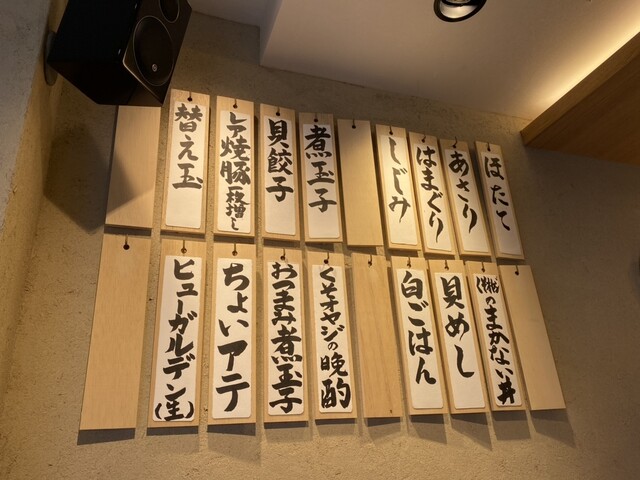 ほたて
あさり
はまぐり
しじみ
煮玉子
貝餃子
レア焼豚増し
替え玉
のまかない丼
貝めし
白ごはん
くそオヤジの晩酌
おつまみ煮玉子
ちょいアテ
ヒューガルデン(生)